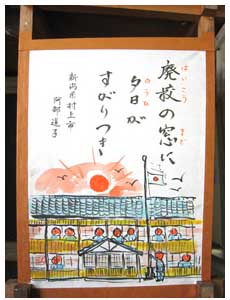 はいこう まど
廃校の窓に
ゆうひ
夕日が
すがりつき
新潟県村上市
阿部